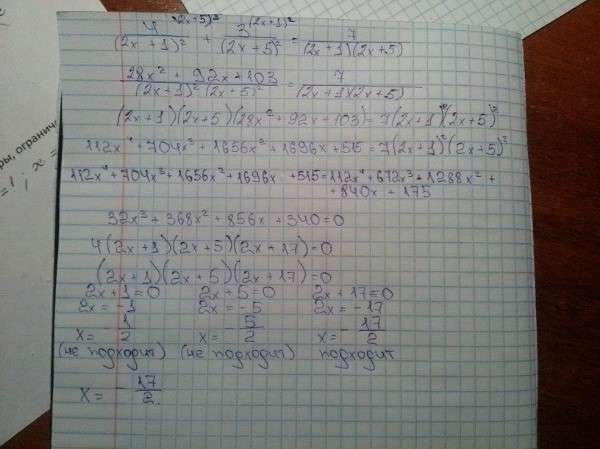 4^(2x+5)² / (2x+1)² + 3^(2x+1)² / (2x+5)² = 7 / (2x+1)(2x+5)
28x² + 92x + 103 / (2x+1)²(2x+5)² = 7 / (2x+1)(2x+5)
(2x+1)(2x+5)(28x²+92x+103)=7(2x+1)²(2x+5)²
112x⁴+704x³+1656x²+1696x+515=7(2x+1)²(2x+5)²
112x⁴+704x³+1656x²+1696x+515=112x⁴+672x³+1288x²+
+840x+175
32x³+368x²+856x+340=0
4(2x+1)(2x+5)(2x+17)=0
(2x+1)(2x+5)(2x+17)=0
2x+1=0 2x+5=0 2x+17=0
2x=-1 2x=-5 2x=-17
x=-1/2 x=-5/2 x=-17/2
(не подходит) (не подходит) подходит
x=-17/2
ры, огранич
=1; x=